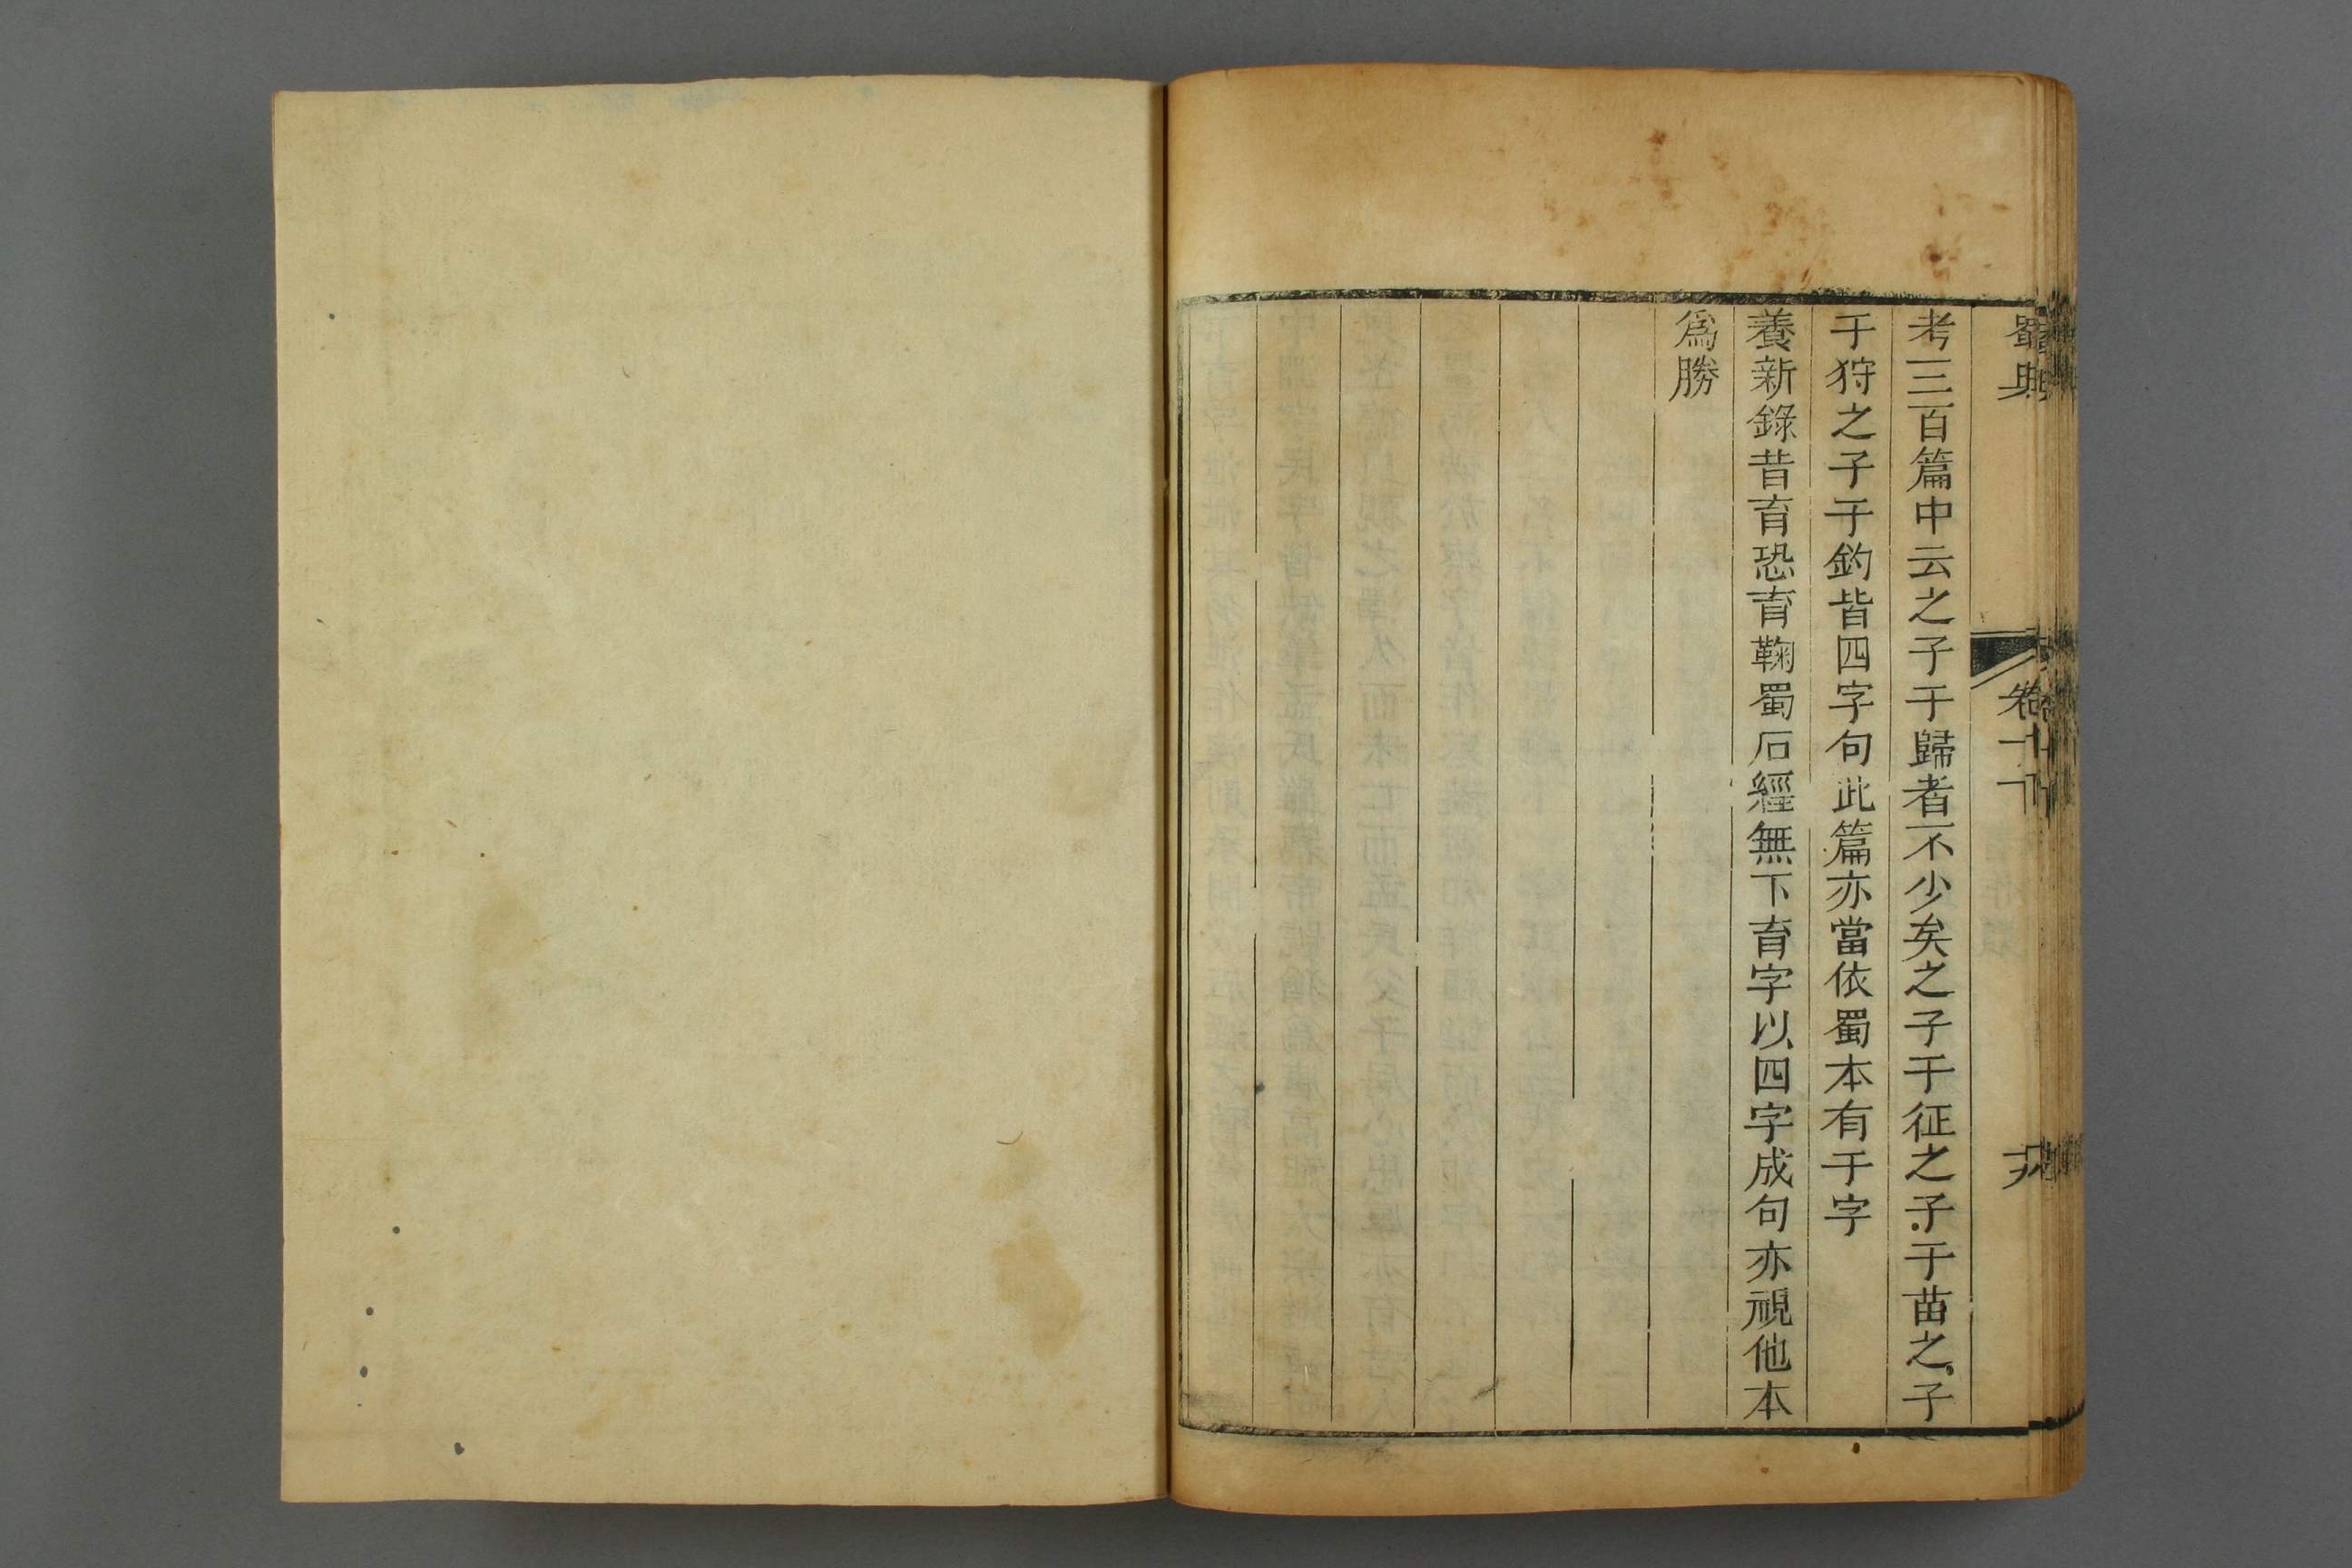 蜀典
卷十下
考三百篇中云之子于歸者不少矣之子于征之子于苗之子
于狩之子于釣皆四字句此篇亦當依蜀本有于字
養新錄昔育恐育鞠蜀石經無下育字以四字成句亦視他本
爲勝